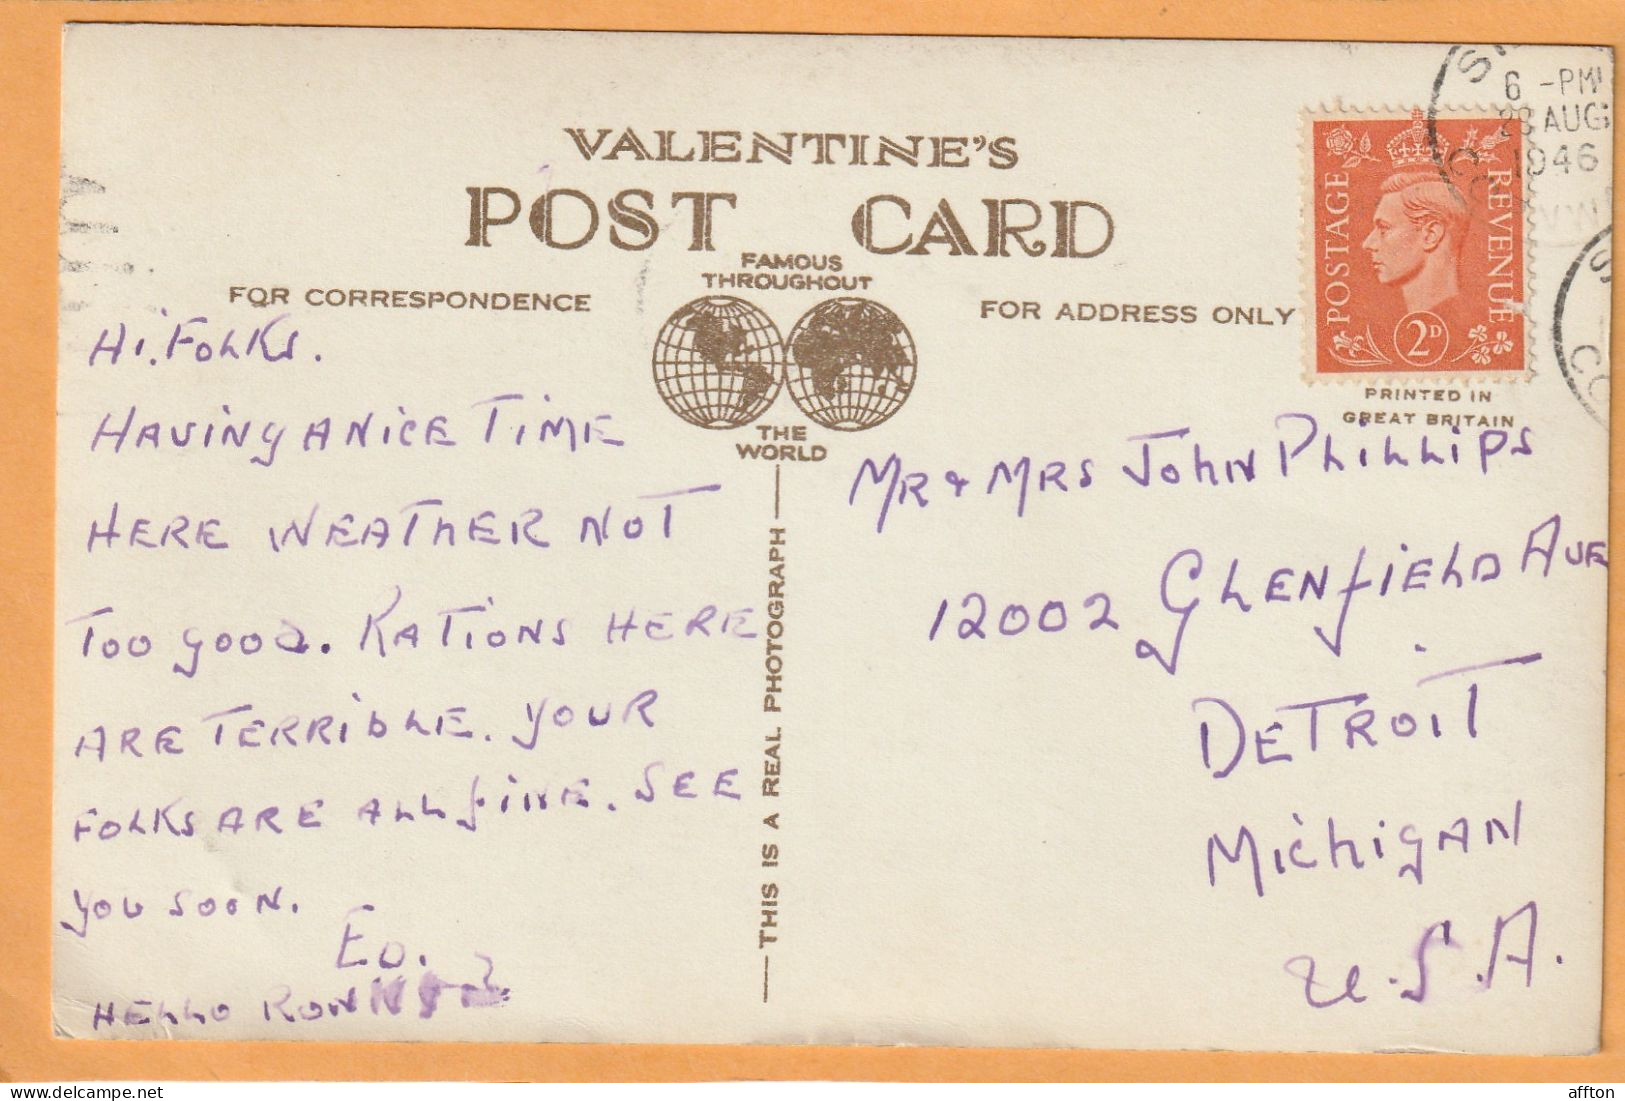 VALENTINE'S
POST CARD
FAMOUS
THROUGHOUT
THE
WORLD
FOR CORRESPONDENCE
FOR ADDRESS ONLY
POSTAGE
REVENUE
2D
6 -PM
AUG
1946
PRINTED IN
GREAT BRITAIN
THIS IS A REAL PHOTOGRAPH
Hi. FOLKS.
HAVING A NICE TIME
HERE WEATHER NOT
TOO GOOD. RATIONS HERE
ARE TERRIBLE. YOUR
FOLKS ARE ALL FINE. SEE
YOU SOON.
ED.
HELLO
MR & MRS JOHN PHILLIPS
12002 GLENFIELD AVE
DETROIT
MICHIGAN
U.S.A.
affton